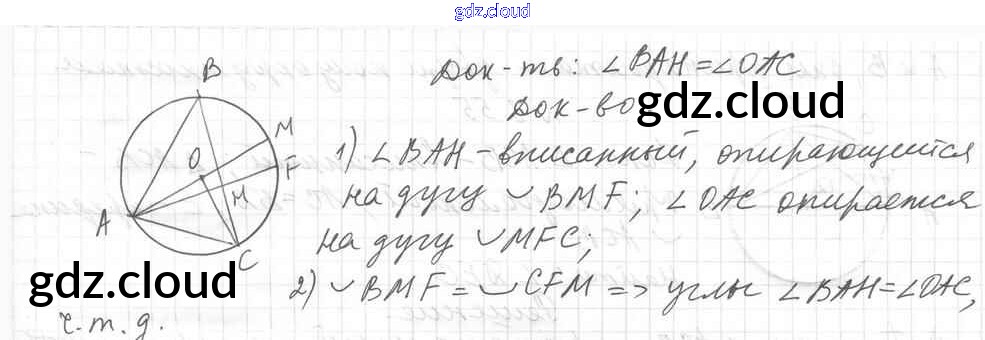 gdz.cloud
Док-ть: ∠BAH=∠OAC
Док-во
gdz.cloud
1) ∠BAH-вписанный, опирающийся
на дугу ◡BMF; ∠OAC опирается
на дугу ◡MFC;
2) ◡BMF = ◡CFM => углы ∠BAH=∠OAC,
ч.т.д.
B
M
O
F
H
A
C
gdz.cloud